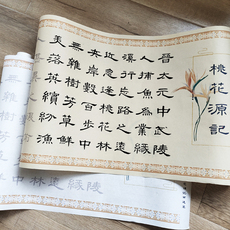 桃花源記
晉太元中武陵
人捕魚為業緣
溪行忘路之遠
近忽逢桃花林
夾岸數百步中
無雜樹芳草鮮
美落英繽紛漁
陵
緣
遠
林
中